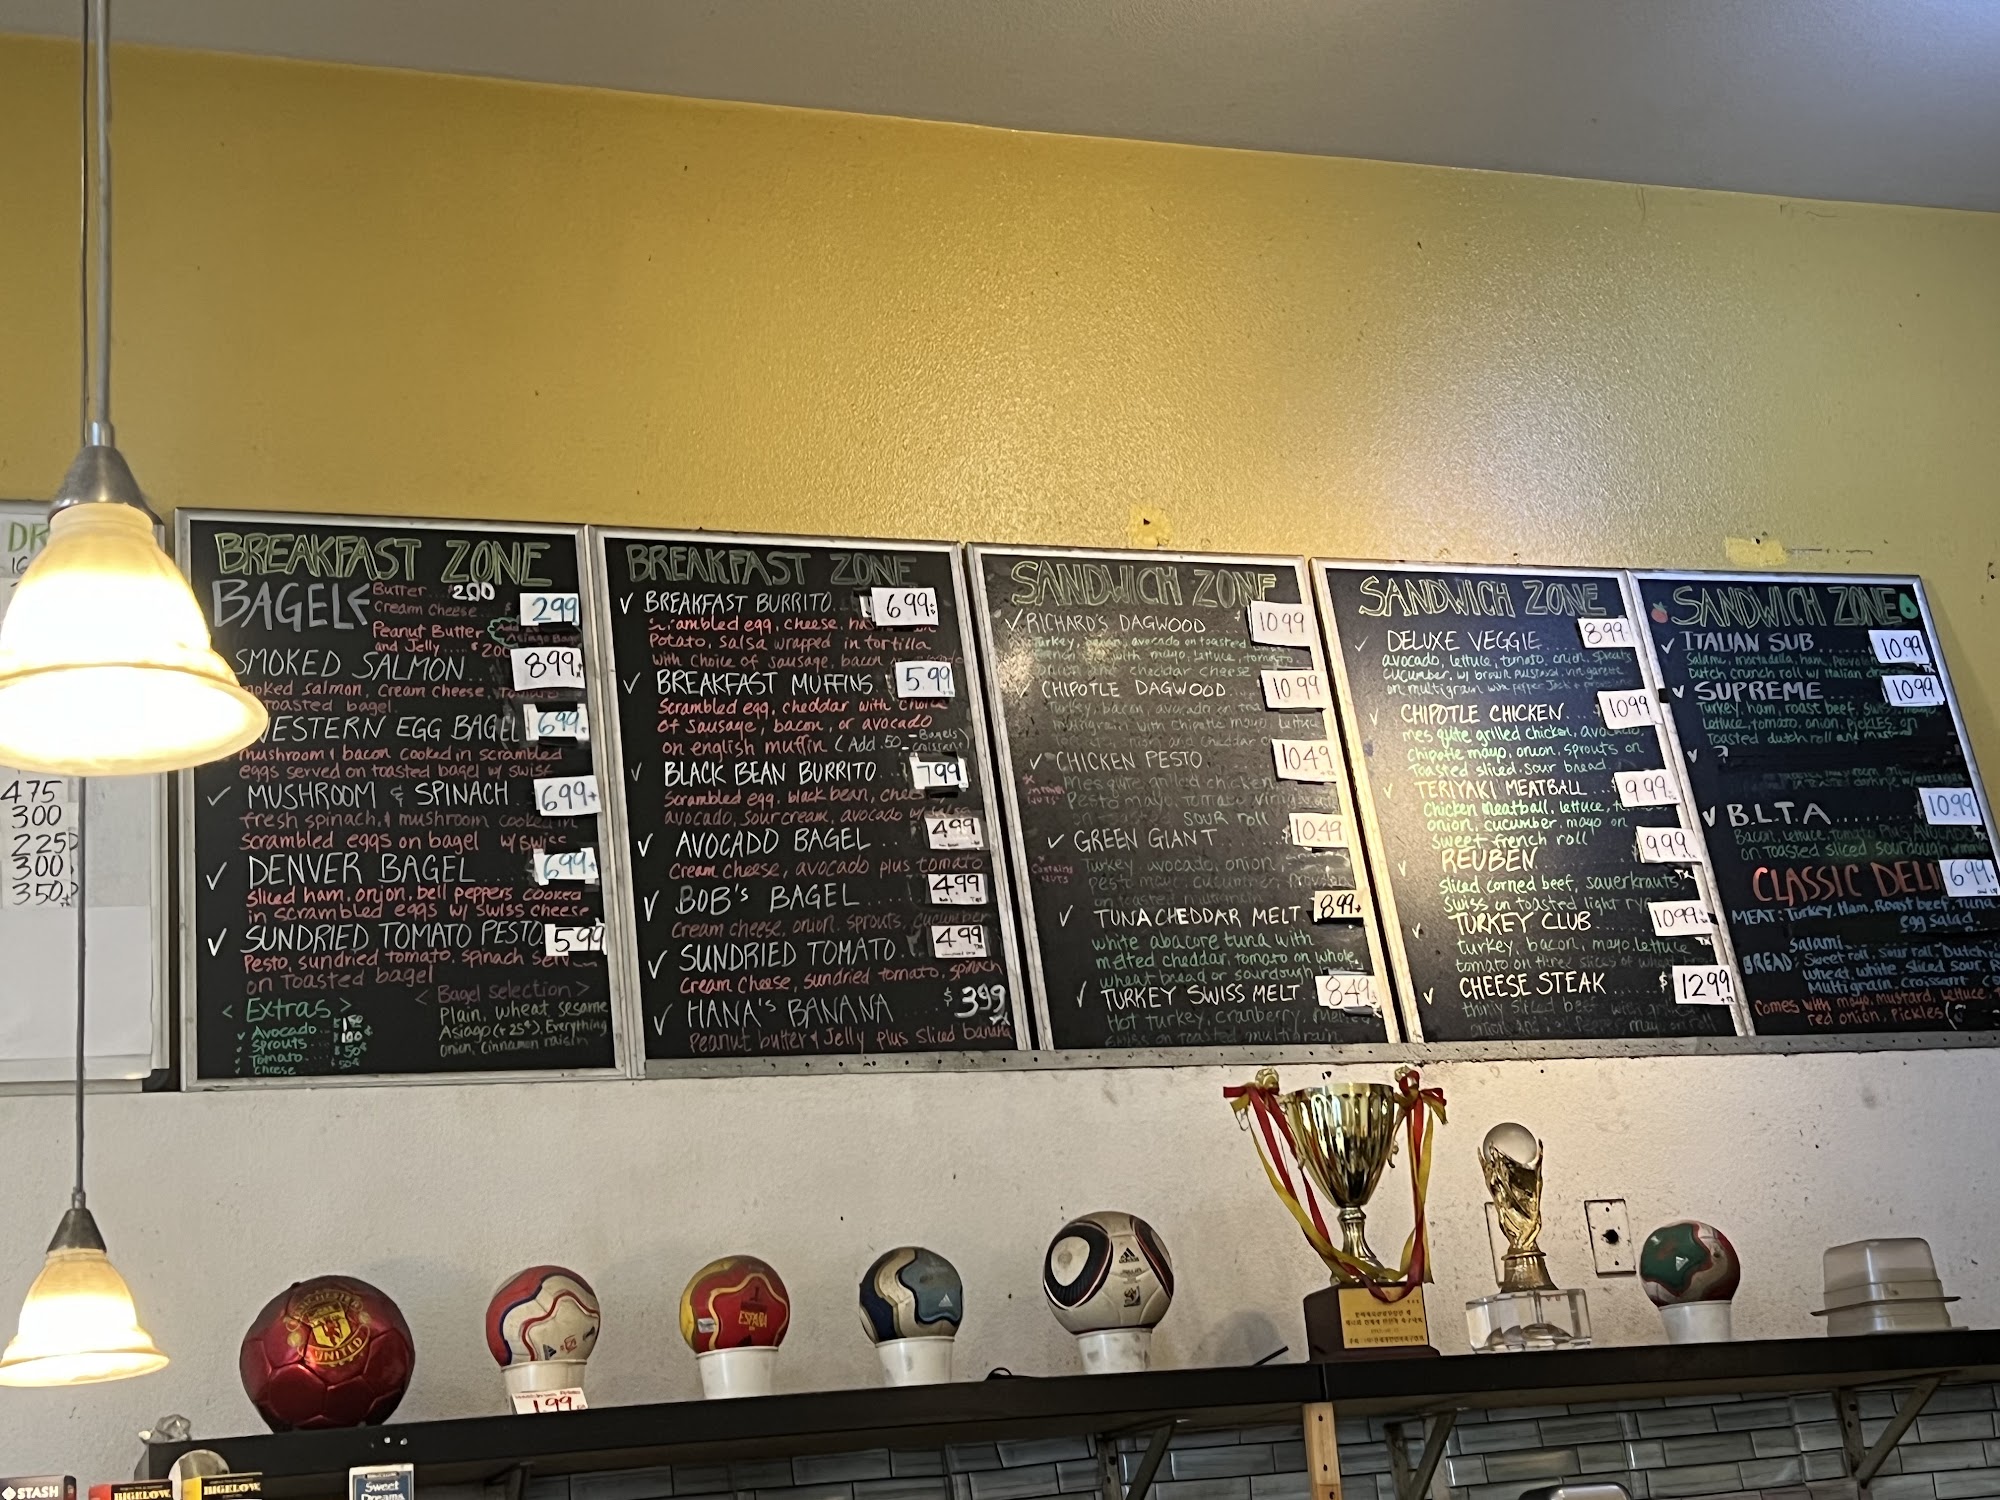 DR
16
475
300
225
300
350
BREAKFAST ZONE
BAGEL
Butter... 200
Cream Cheese... $ 299
Peanut Butter
and Jelly.... $200
Asiago Bagel
SMOKED SALMON.. 899
smoked salmon, cream cheese,
toasted bagel.
WESTERN EGG BAGEL 699
mushroom & bacon cooked in scrambled
eggs served on toasted bagel w/ swiss
✓ MUSHROOM & SPINACH.. 699+
fresh spinach & mushroom cooked in
scrambled eggs on bagel w/ swiss
✓ DENVER BAGEL.... 699+
sliced ham, onion, bell peppers cooked
in scrambled eggs w/ swiss cheese
✓ SUNDRIED TOMATO PESTO 599
Pesto, sundried tomato, spinach
on Toasted bagel
< Extras >
✓ Avocado... $1.50
✓ Sprouts... $100
✓ Tomato... $50¢
✓ cheese... $50¢
< Bagel selection >
Plain, wheat, sesame
Asiago (+25¢), Everything
onion, cinnamon raisin
BREAKFAST ZONE
✓ BREAKFAST BURRITO.. 699+
scrambled egg, cheese,
Potato, salsa wrapped in tortilla
with choice of sausage, bacon
✓ BREAKFAST MUFFINS. 599
Scrambled egg, cheddar with choice
of sausage, bacon, or avocado
on english muffin (Add .50 - Bagels
croissant)
✓ BLACK BEAN BURRITO. 799
Scrambled egg, black bean, cheese
avocado, sour cream, avocado w/ salsa
✓ AVOCADO BAGEL... 499
Cream cheese, avocado plus tomato
✓ BOB'S BAGEL.... 499
Cream cheese, onion, sprouts, cucumber
✓ SUNDRIED TOMATO. 499
Cream cheese, sundried tomato, spinach
✓ HANA'S BANANA ... $ 399
Peanut butter & Jelly plus sliced banana
SANDWICH ZONE
✓ RICHARD'S DAGWOOD 1099
Turkey, bacon, avocado on toasted
with mayo, lettuce, tomato
onion and cheddar cheese
✓ CHIPOTLE DAGWOOD 1099
Turkey, bacon, avocado on
multigrain with chipotle mayo, lettuce
✓ CHICKEN PESTO 1049
Mesquite grilled chicken
Pesto mayo, tomato
sour roll
✓ GREEN GIANT 1049
* contains
NUTS
Turkey, avocado, onion,
pesto mayo, cucumber, provolone
on toasted multigrain
✓ TUNA CHEDDAR MELT. 899+
white abacore tuna with
melted cheddar, tomato on whole
wheat bread or sourdough
✓ TURKEY SWISS MELT. 849
Hot turkey, cranberry, melted
swiss on toasted multigrain
SANDWICH ZONE
✓ DELUXE VEGGIE... 899
avocado, lettuce, tomato, onion, sprouts
cucumber, w/ brown mustard, vinaigrette
on multigrain with pepper jack
✓ CHIPOTLE CHICKEN... 1099
mesquite grilled chicken, avocado,
chipotle mayo, onion, sprouts on
Toasted sliced sour bread.
✓ TERIYAKI MEATBALL.. 999
Chicken meatball, lettuce,
onion, cucumber, mayo on
sweet french roll
✓ REUBEN 999
sliced corned beef, sauerkrauts,
Swiss on toasted light rye
✓ TURKEY CLUB 1099
turkey, bacon, mayo, lettuce
tomato on three slices of wheat
✓ CHEESE STEAK $ 1299
thinly sliced beef with
onion and bell pepper, mayo on roll
SANDWICH ZONE
✓ ITALIAN SUB...... 1099
Salami, mortadella, ham, provolone
Dutch crunch roll w/ Italian
✓ SUPREME...... 1099
Turkey, ham, roast beef, swiss, mayo
Lettuce, tomato, onion, pickles, on
Toasted dutch roll and mustard
✓ B.L.T.A...... 1099
Bacon, lettuce, tomato plus Avocado
on Toasted sliced sourdough
CLASSIC DELI 699
MEAT: Turkey, Ham, Roast beef, Tuna
egg salad,
Salami
BREAD: Sweet roll, Sour roll, Dutch
wheat, white, sliced sour, R
Multigrain, croissant
Comes with mayo, mustard, lettuce,
red onion, pickles
MANCHESTER
UNITED
ESPAÑA
adidas
1.99
STASH
BIGELOW
BIGELOW
Sweet
Dreams